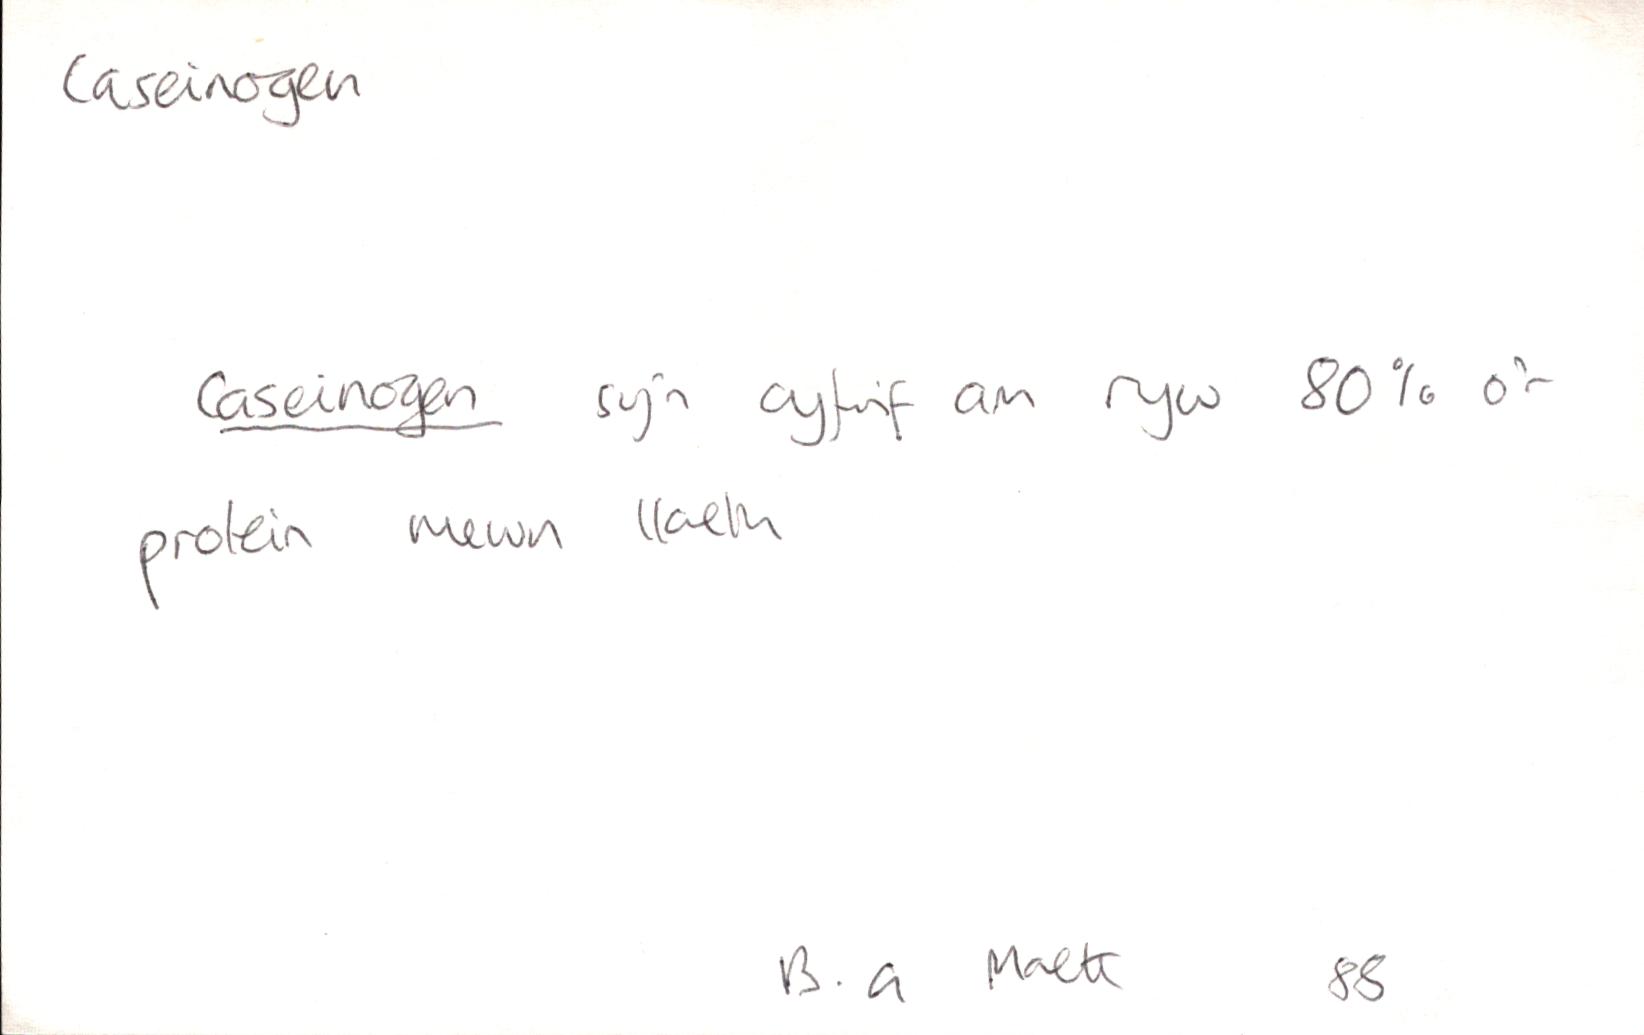 Caseinogen
Caseinogen sy'n cyfrif am ryw 80% o'r
protein mewn llaeth
B. a Maeth 88